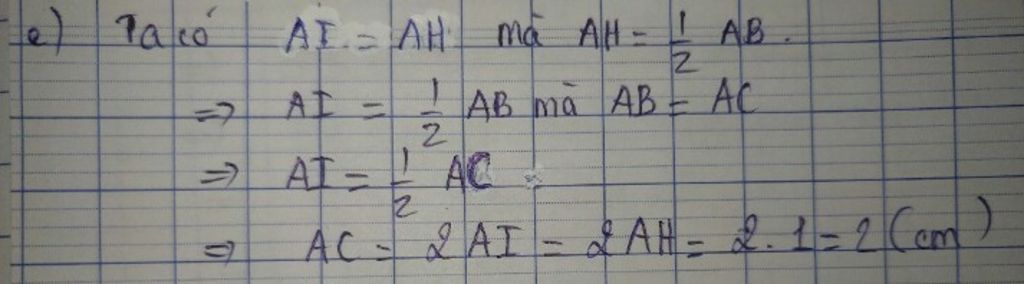 e) Ta có AI = AH mà AH = 1/2 AB.
=> AI = 1/2 AB mà AB = AC
=> AI = 1/2 AC
=> AC = 2AI = 2AH = 2.1 = 2 (cm)